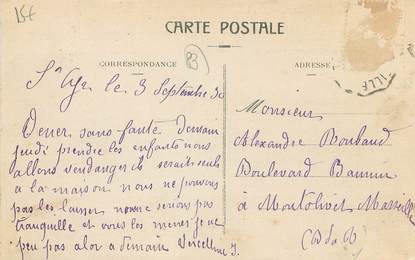 15€
CARTE POSTALE
CORRESPONDANCE
ADRESSE
83
St Cyr le 3 Septembre 30
Venez sans faute Demain
jeudi prendre les enfants nous
allons vendanger ils serait seuls
a la maison nous ne pouvons
pas les laisser nous ne serions pas
tranquille et vous les mener je ne
peu pas alor a demain
Monsieur
Alexandre Roubaud
Boulevard
à Montolivet Marseille
B du R